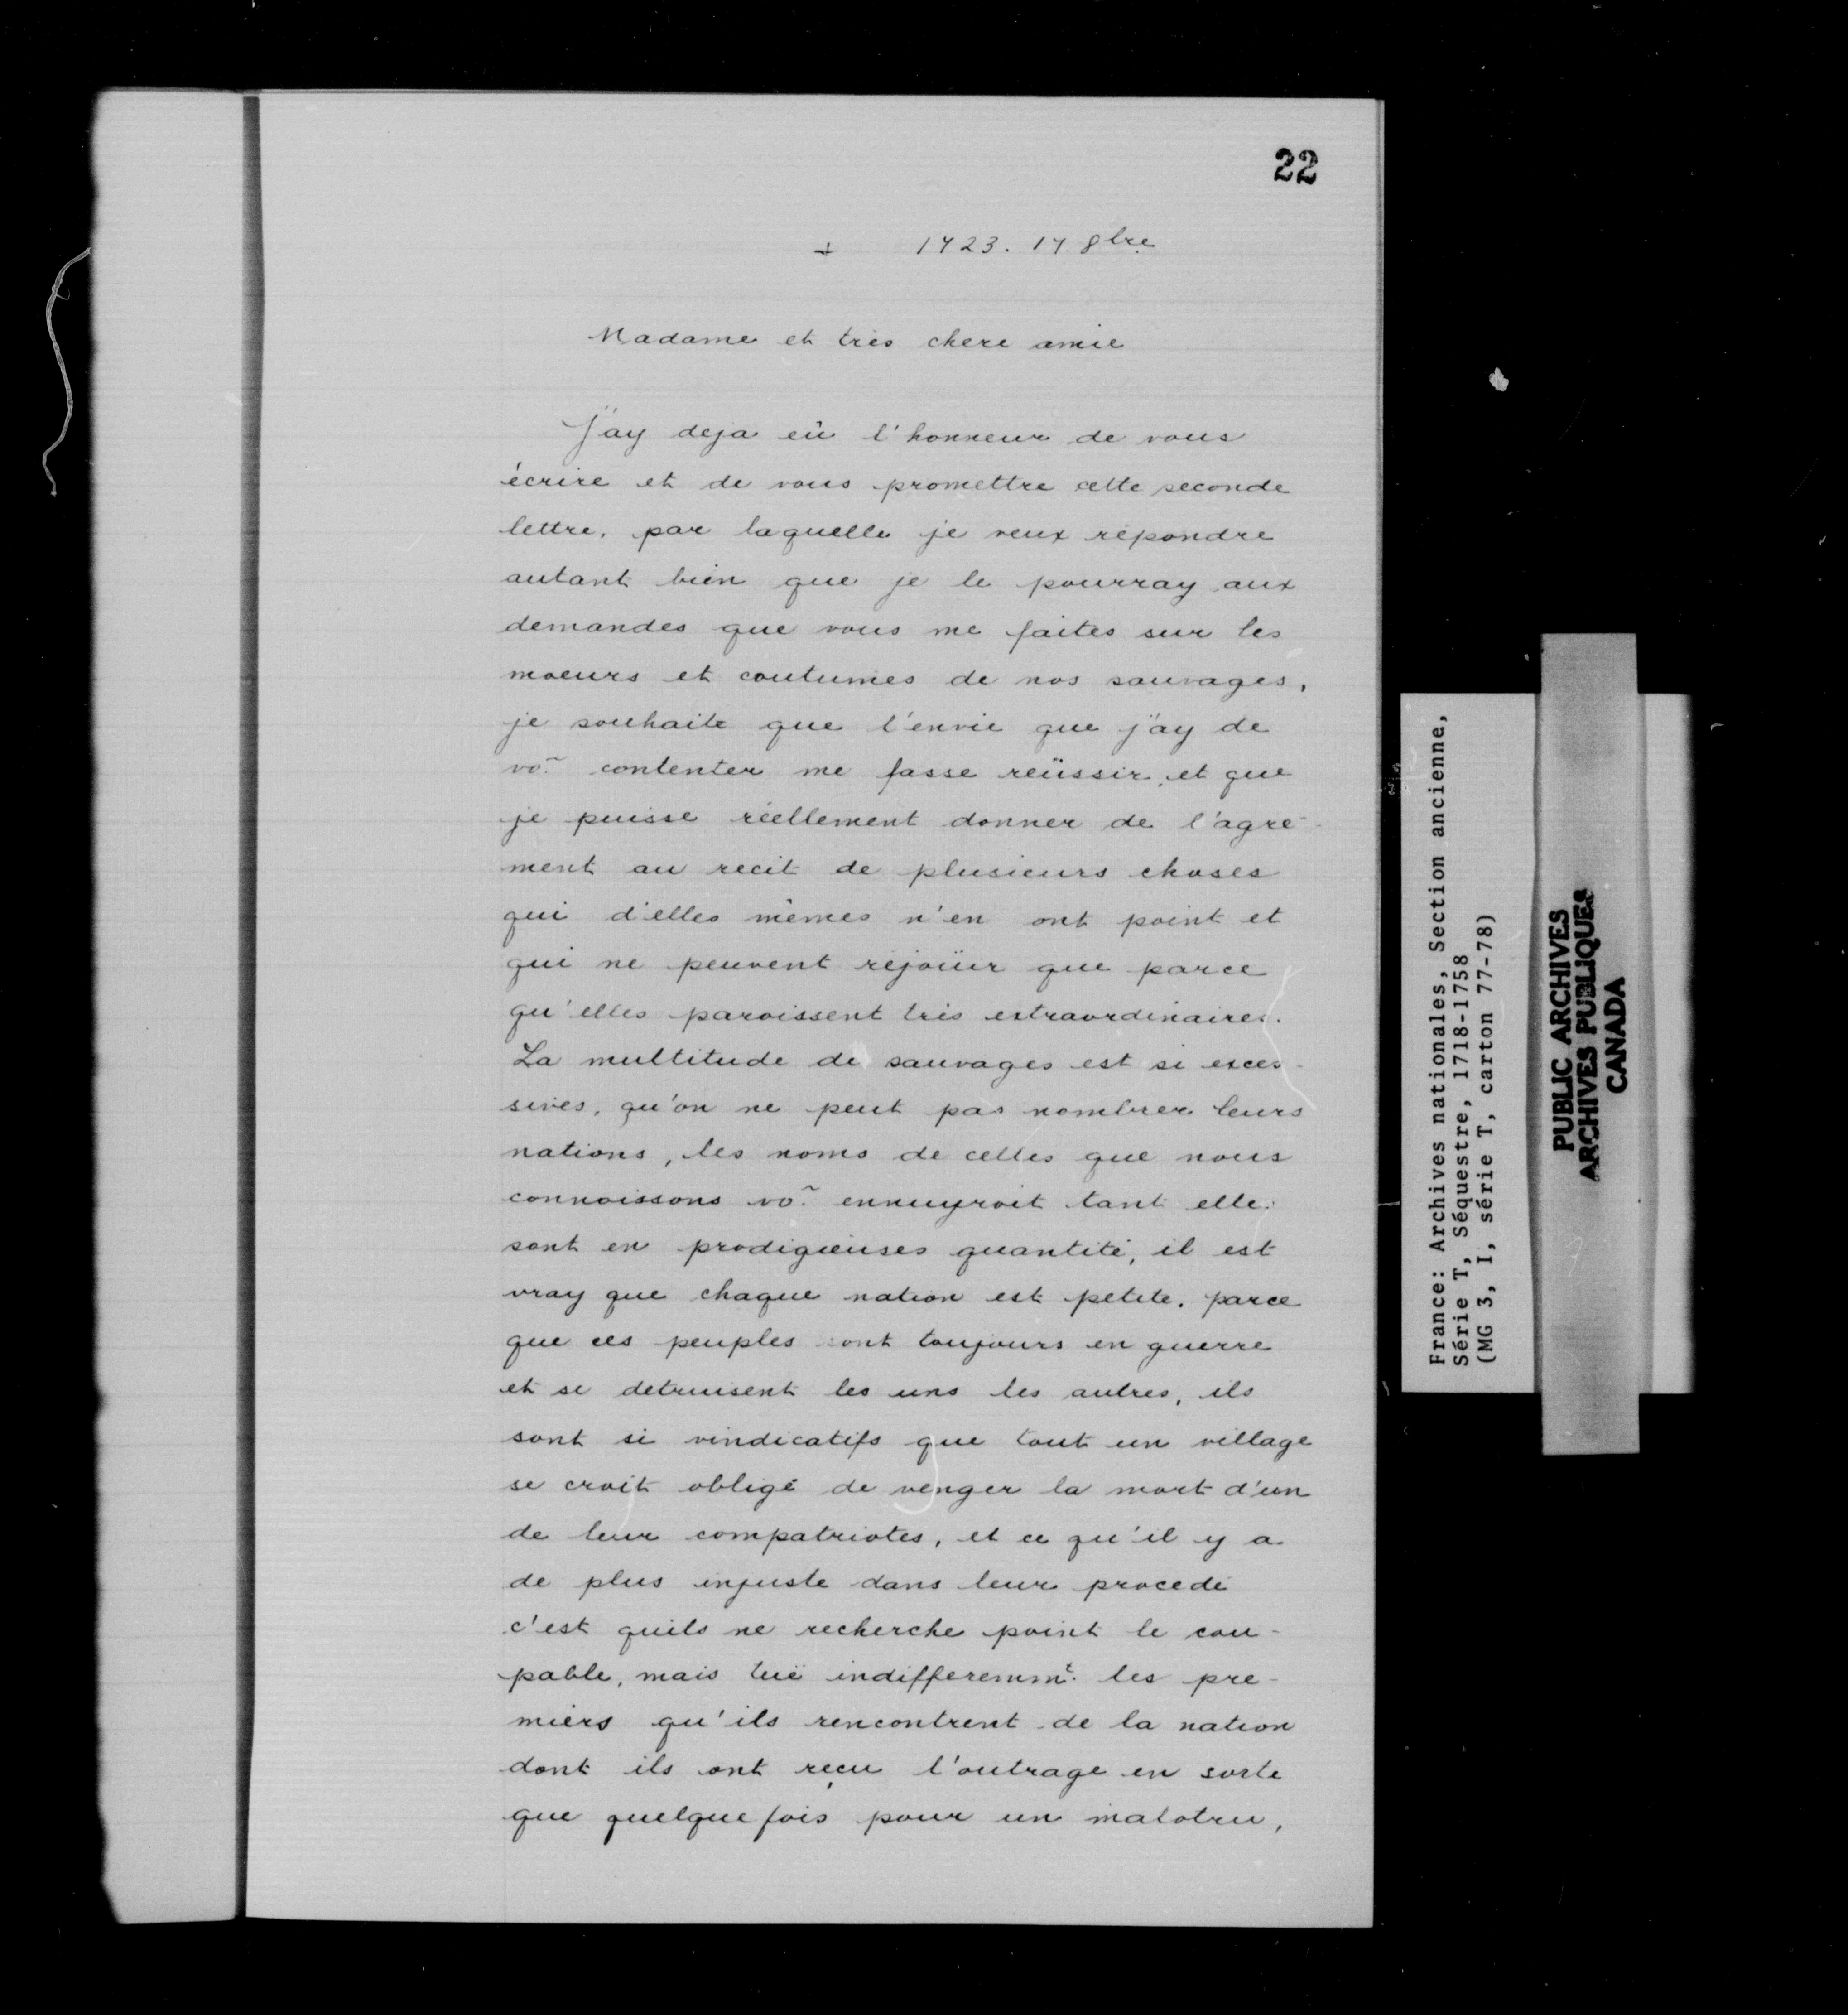 22
+ 1723. 17. 8bre
Madame et très chere amie
J'ay deja eû l'honneur de vous
écrire et de vous promettre cette seconde
lettre, par laquelle je veux répondre
autant bien que je le pourray aux
demandes que vous me faites sur les
moeurs et coutumes de nos sauvages,
je souhaite que l'envie que j'ay de
vo~ contenter me fasse reüssir, et que
je puisse réellement donner de l'agré-
ment au recit de plusieurs choses
qui d'elles mêmes n'en ont point et
qui ne peuvent rejoüir que parce
qu'elles paroissent très extraordinaires.
La multitude de sauvages est si exces-
sives, qu'on ne peut pas nombrer leurs
nations, les noms de celles que nous
connoissons vo~ ennuyroit tant elles
sont en prodigieuses quantité, il est
vray que chaque nation est petite, parce
que ces peuples sont toujours en guerre
et se detruisent les uns les autres, ils
sont si vindicatifs que tout un village
se croit obligé de venger la mort d'un
de leur compatriotes, et ce qu'il y a
de plus injuste dans leur procedé
c'est quils ne recherche point le cou-
pable, mais tuë indifferemmt. les pre-
miers qu'ils rencontrent de la nation
dont ils ont reçu l'outrage en sorte
que quelque fois pour un malotru,
France: Archives nationales, Section ancienne,
Série T, Séquestre, 1718-1758
(MG 3, I, série T, carton 77-78)
PUBLIC ARCHIVES
ARCHIVES PUBLIQUES
CANADA